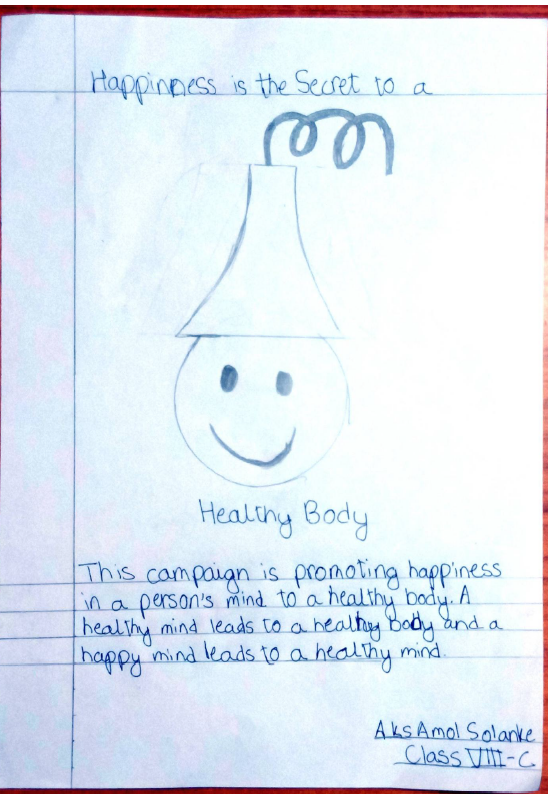 Happinness is the Secret to a
Healthy Body
This campaign is promoting happiness
in a person's mind to a healthy body. A
healthy mind leads to a healthy body and a
happy mind leads to a healthy mind.
Aks Amol Solanke
Class VIII-C